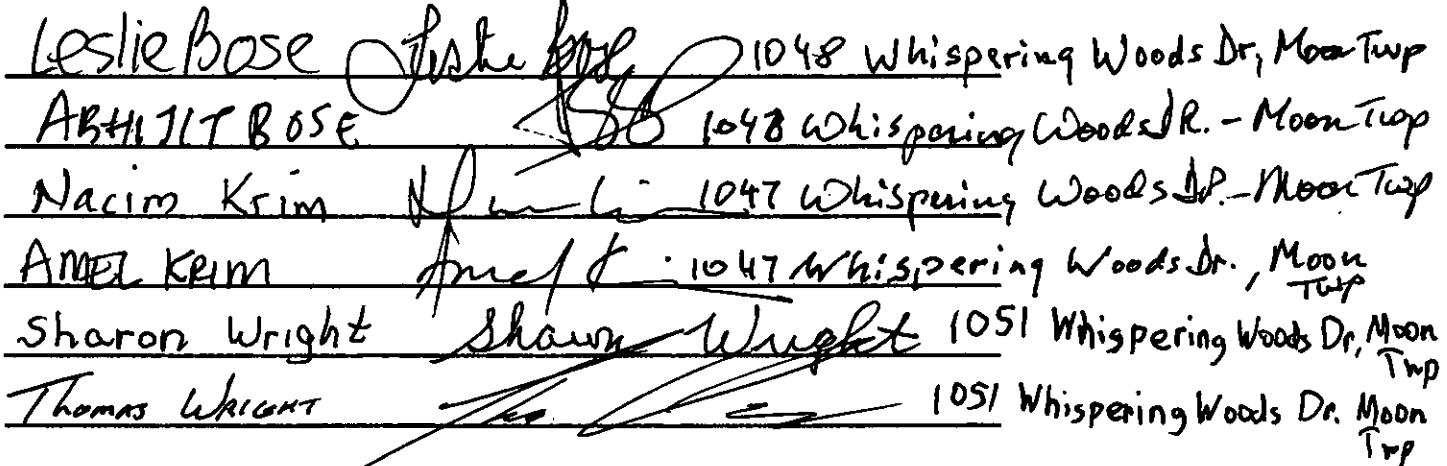 Leslie Bose Leslie Bose 1048 Whispering Woods Dr, Moon Twp
ABHIJIT BOSE 1048 Whispering Woods DR. - Moon Twp
Nacim Krim 1047 Whispering Woods DR. - Moon Twp
AMEL KRIM Amel K 1047 Whispering Woods Dr., Moon Twp
Sharon Wright Sharon Wright 1051 Whispering Woods Dr, Moon Twp
Thomas WRIGHT 1051 Whispering Woods Dr. Moon Twp